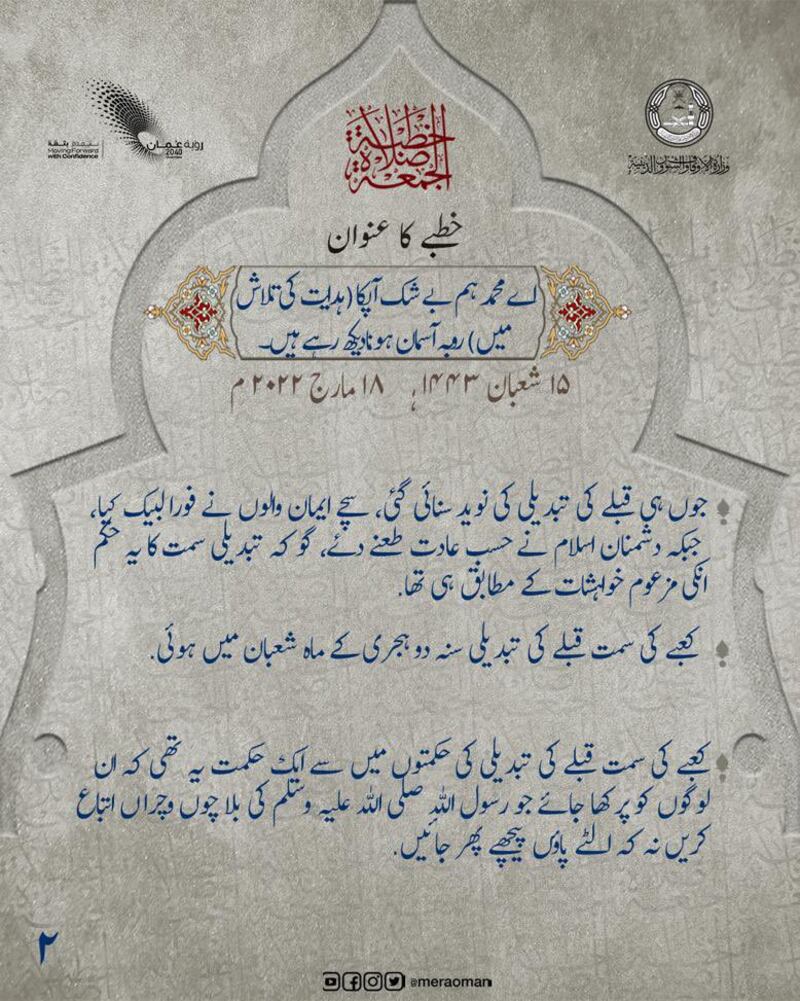 رؤية عُمان
2040
نتقدم بثقة
Moving Forward
with Confidence
وزارة الأوقاف والشؤون الدينية
خطبة
صلاة
الجمعة
خطبے کا عنوان
اے محمد ہم بے شک آپکا (ہدایت کی تلاش
میں) روبہ آسمان ہونا دیکھ رہے ہیں۔
۱۵ شعبان ۱٤٤۳ہ، ۱۸ مارچ ۲۰۲۲ م
جوں ہی قبلے کی تبدیلی کی نوید سنائی گئی، سچے ایمان والوں نے فورا لبیک کہا،
جبکہ دشمنان اسلام نے حسب عادت طعنے دئے، گو کہ تبدیلی سمت کا یہ حکم
انکی مزعوم خواہشات کے مطابق ہی تھا.
کعبے کی سمت قبلے کی تبدیلی سنہ دو ہجری کے ماہ شعبان میں ہوئی.
کعبے کی سمت قبلے کی تبدیلی کی حکمتوں میں سے ایک حکمت یہ تھی کہ ان
لوگوں کو پرکھا جائے جو رسول اللہ صلی اللہ علیہ وسلم کی بلا چوں وچراں اتباع
کریں نہ کہ الٹے پاؤں پیچھے پھر جائیں.
۲
@meraoman